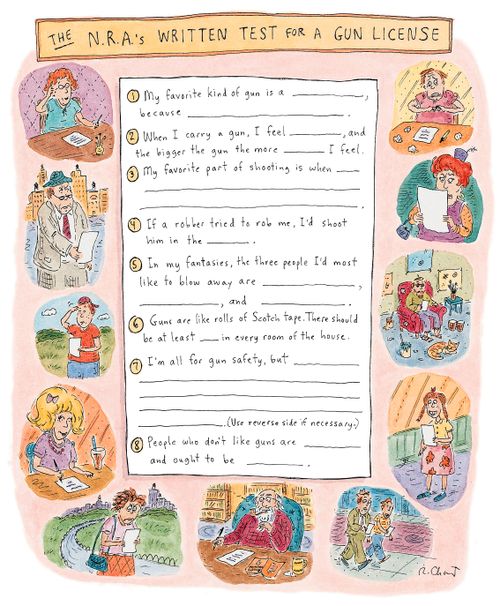 THE N.R.A.'s WRITTEN TEST FOR A GUN LICENSE
1 My favorite kind of gun is a __________,
because ______________________.
2 When I carry a gun, I feel ________, and
the bigger the gun the more ______ I feel.
3 My favorite part of shooting is when ____
______________________________
______________________________.
4 If a robber tried to rob me, I'd shoot
him in the ________.
5 In my fantasies, the three people I'd most
like to blow away are ______________,
___________, and ___________.
6 Guns are like rolls of Scotch tape. There should
be at least ___ in every room of the house.
7 I'm all for gun safety, but __________
______________________________
______________________________
______________________________
____________. (Use reverse side if necessary.)
8 People who don't like guns are ________
and ought to be _________.
R. Chast